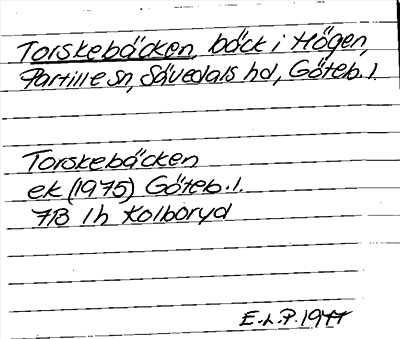 Torskebäcken, bäck i Högen,
Partille sn, Sävedals hd, Göteb. l.
Torskebäcken
ek (1975) Göteb. l.
7B 1h Kolboryd
E.L.P. 1977